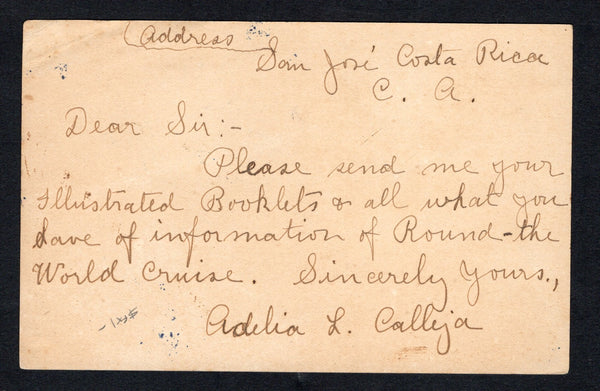 Address
San José Costa Rica
C. A.
Dear Sir:-
Please send me your
Illustrated Booklets & all what you
have of information of Round-the
World Cruise. Sincerely Yours.,
Adelia L. Calleja